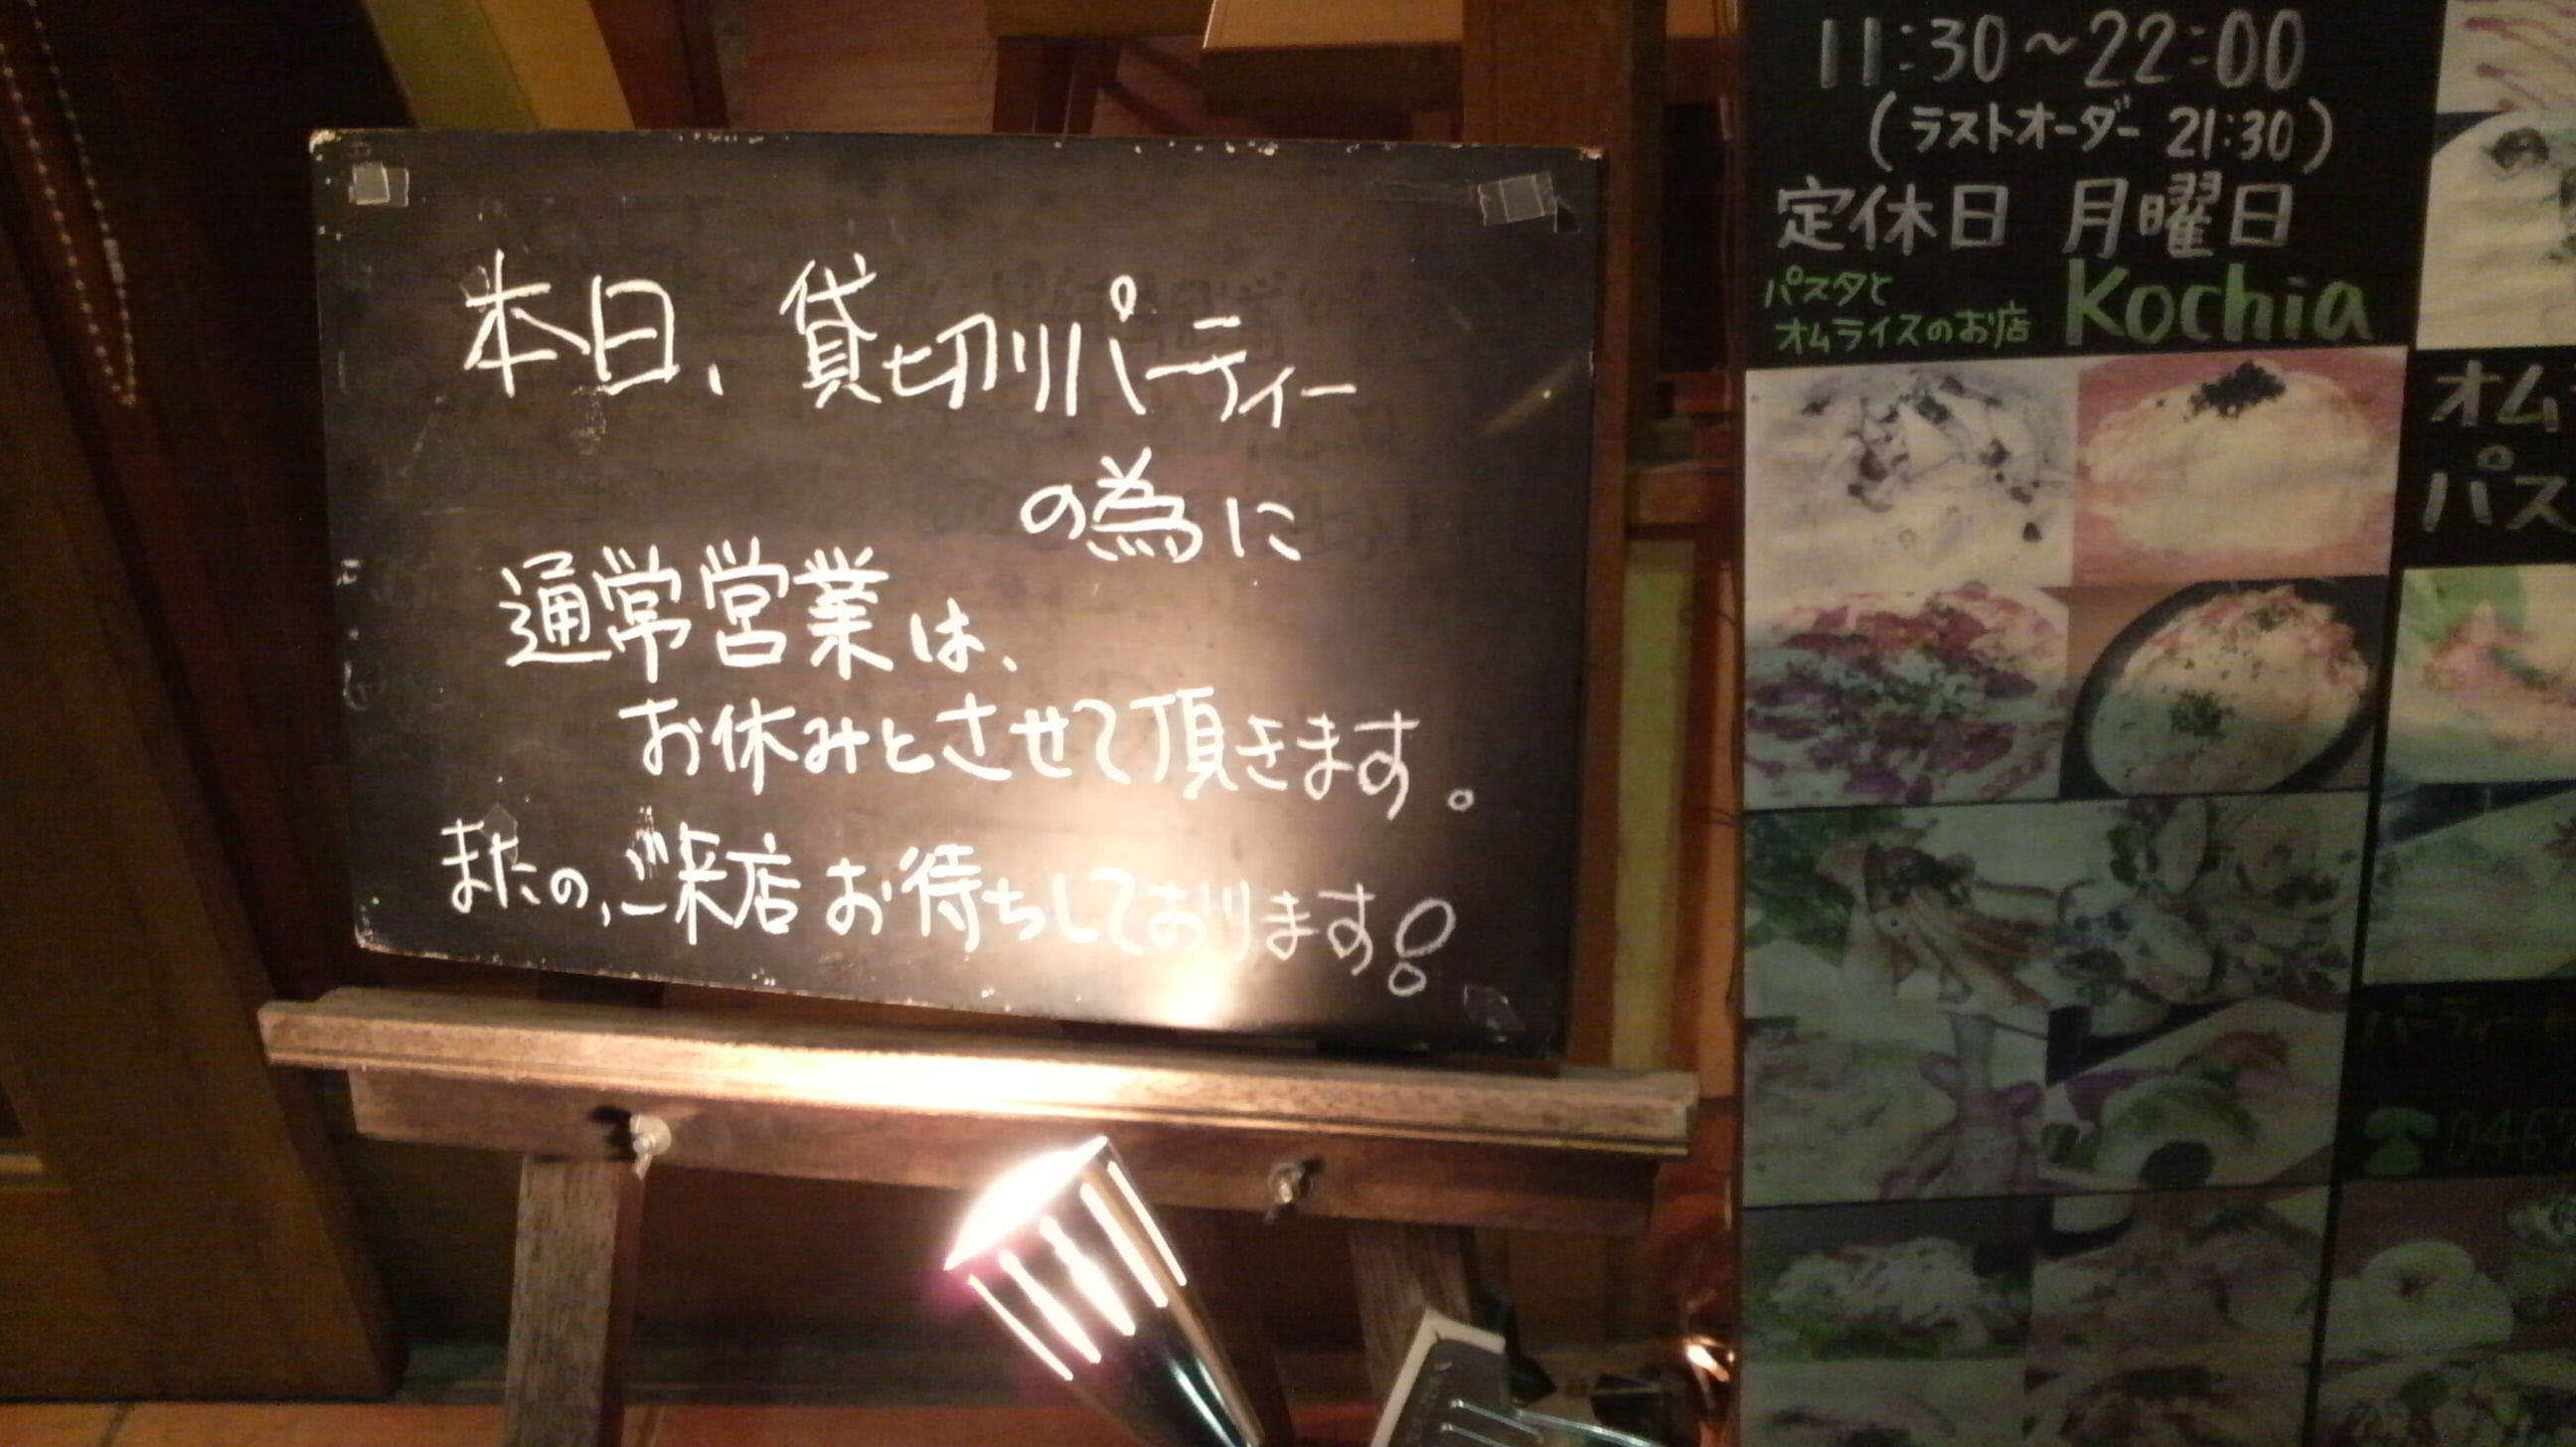 本日、貸切りパーティー
の為に
通常営業は、
お休みとさせて頂きます。
またの、ご来店お待ちしております!
11:30~22:00
(ラストオーダー 21:30)
定休日 月曜日
パスタと
オムライスのお店 Kochia
オム
パス
パーティー
046